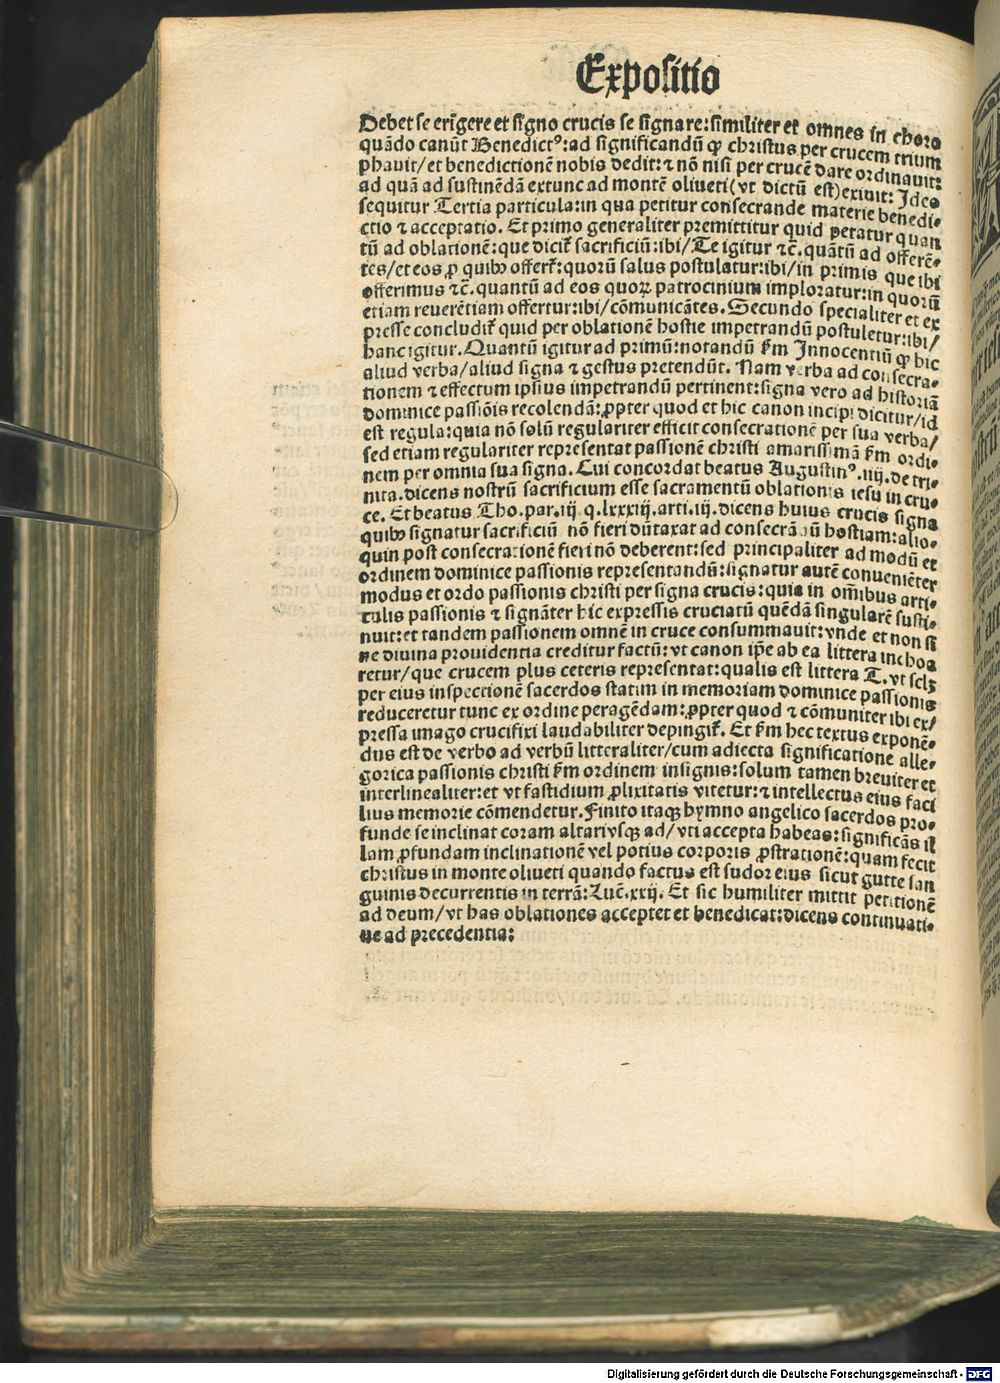 Expositio
Debet se erigere et signo crucis se signare:similiter et omnes in choro
quādo canūt Benedictꝰ:ad significandū ꝙ christus per crucem trium
phauit/et benedictionē nobis dedit:⁊ nō nisi per crucē dare ordinauit:
ad quā ad sustinēdā extunc ad montē oliueti(vt dictū est)exiuit: Ideo
sequitur Tertia particula:in qua petitur consecrande materie benedi⸗
ctio ⁊ acceptatio. Et primo generaliter premittitur quid petatur quan
tū ad oblationē:que dicit̄ sacrificiū:ibi/Te igitur ⁊c̄. quātū ad offerē⸗
tes/et eos ꝓ quibꝰ offert̄:quorū salus postulatur:ibi/in primis que ibi
offerimus ⁊c̄. quantū ad eos quoꝝ patrocinium imploratur:in quorū
etiam reuerētiam offertur:ibi/cōmunicātes. Secundo specialiter et ex
presse concludit̄ quid per oblationē hostie impetrandū postuletur:ibi/
hanc igitur. Quantū igitur ad primū:notandū ẜm Innocentiū ꝙ hic
aliud verba/aliud signa ⁊ gestus pretendūt. Nam verba ad consecra⸗
tionem ⁊ effectum ipsius impetrandū pertinent:signa vero ad historiā
dominice passiōis recolendā:ꝓpter quod et hic canon incipi dicitur/id
est regula:quia nō solū regulariter efficit consecrationē per sua verba/
sed etiam regulariter representat passionē christi amarissimā ẜm ordi⸗
nem per omnia sua signa. Cui concordat beatus Augustinꝰ.iiij.de tri⸗
nita.dicens nostrū sacrificium esse sacramentū oblationis iesu in cru⸗
ce. Et beatus Tho.par.iij q.lxxxiij.arti.iij.dicens huius crucis signa
quibꝰ signatur sacrificiū nō fieri dūtaxat ad consecrādū hostiam:alio⸗
quin post consecrationē fieri nō deberent:sed principaliter ad modū et
ordinem dominice passionis representandū:signatur autē conueniēter
modus et ordo passionis christi per signa crucis:quia in om̄ibus arti⸗
culis passionis ⁊ signāter hic expressis cruciatū quēdā singularē susti⸗
nuit:et tandem passionem omnē in cruce consummauit:vnde et non si
ne diuina prouidentia creditur factū:vt canon ip̄e ab ea littera inchoa
retur/que crucem plus ceteris representat:qualis est littera T.vt sclꝫ
per eius inspectionē sacerdos statim in memoriam dominice passionis
reduceretur tunc ex ordine peragēdam:ꝓpter quod ⁊ cōmuniter ibi ex/
pressa imago crucifixi laudabiliter depingit̄. Et ẜm hec textus exponē⸗
dus est de verbo ad verbū litteraliter/cum adiecta significatione alle⸗
gorica passionis christi ẜm ordinem insignis:solum tamen breuiter et
interlinealiter:et vt fastidium ꝓlixitatis vitetur:⁊ intellectus eius faci
lius memorie cōmendetur. Finito itaqꝫ hymno angelico sacerdos pro⸗
funde se inclinat coram altari vsqꝫ ad/vti accepta habeas:significās il
lam ꝓfundam inclinationē vel potius corporis ꝓstrationē:quam fecit
christus in monte oliueti quando factus est sudor eius sicut gutte san
guinis decurrentis in terrā:Luc̄.xxij. Et sic humiliter mittit petitionē
ad deum/vt has oblationes acceptet et benedicat:dicens continuati⸗
ue ad precedentia:
Digitalisierung gefördert durch die Deutsche Forschungsgemeinschaft - DFG